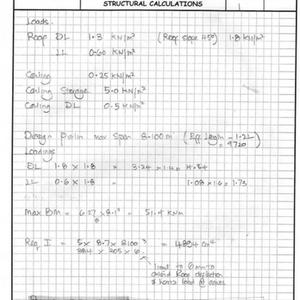 STRUCTURAL CALCULATIONS
Loads.
Roof DL 1.3 KN/m² (Roof slope 45°) 1.8 KN/m²
LL 0.60 KN/m²
Ceiling 0.25 KN/m²
Ceiling Storage 5.0 KN/m²
Ceiling DL 0.5 KN/m²
Design Purlin max Span 8.100m (Eff Length = 1.2L
9720)
Loadings
DL 1.8 x 1.8 = 3.24 x 1.4 = 4.54
LL 0.6 x 1.8 = 1.08 x 1.6 = 1.73
Max BM = 6.27 x 8.1² = 51.4 KNm
8
Req I = 5 x 8.7 x 8100³ = 4884 cm⁴
384 x 205 x 6
limit to 6mm to
avoid Roof deflection
& horiz load at eaves